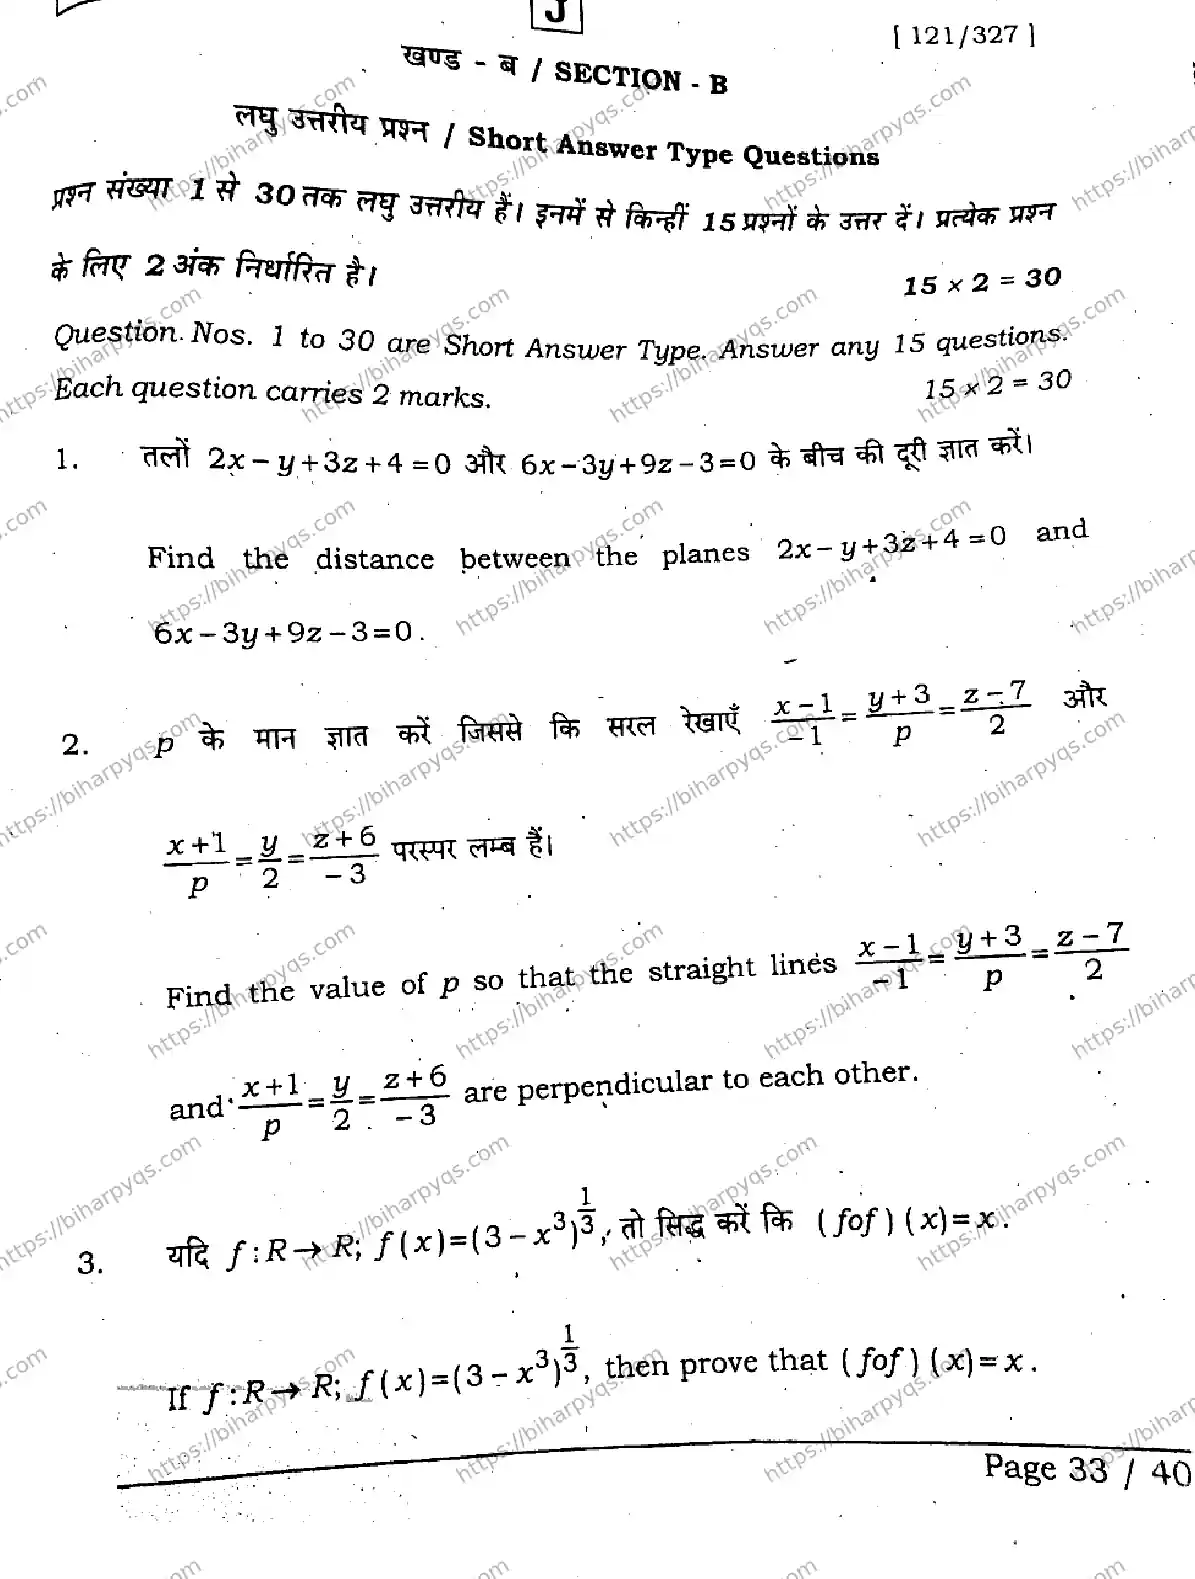 J
[ 121/327 ]
खण्ड - ब / SECTION - B
लघु उत्तरीय प्रश्न / Short Answer Type Questions
प्रश्न संख्या 1 से 30 तक लघु उत्तरीय हैं। इनमें से किन्हीं 15 प्रश्नों के उत्तर दें। प्रत्येक प्रश्न
के लिए 2 अंक निर्धारित है।
15 × 2 = 30
Question Nos. 1 to 30 are Short Answer Type. Answer any 15 questions.
Each question carries 2 marks.
15 × 2 = 30
1. तलों 2x – y + 3z + 4 = 0 और 6x – 3y + 9z – 3 = 0 के बीच की दूरी ज्ञात करें।
Find the distance between the planes 2x – y + 3z + 4 = 0 and
6x – 3y + 9z – 3 = 0.
2. p के मान ज्ञात करें जिससे कि सरल रेखाएँ (x – 1)/(–1) = (y + 3)/p = (z – 7)/2 और
(x + 1)/p = y/2 = (z + 6)/(–3) परस्पर लम्ब हैं।
Find the value of p so that the straight lines (x – 1)/(–1) = (y + 3)/p = (z – 7)/2
and (x + 1)/p = y/2 = (z + 6)/(–3) are perpendicular to each other.
3. यदि f : R → R; f(x) = (3 – x³)^(1/3), तो सिद्ध करें कि (fof)(x) = x.
If f : R → R; f(x) = (3 – x³)^(1/3), then prove that (fof)(x) = x.
Page 33 / 40
https://biharpyqs.com